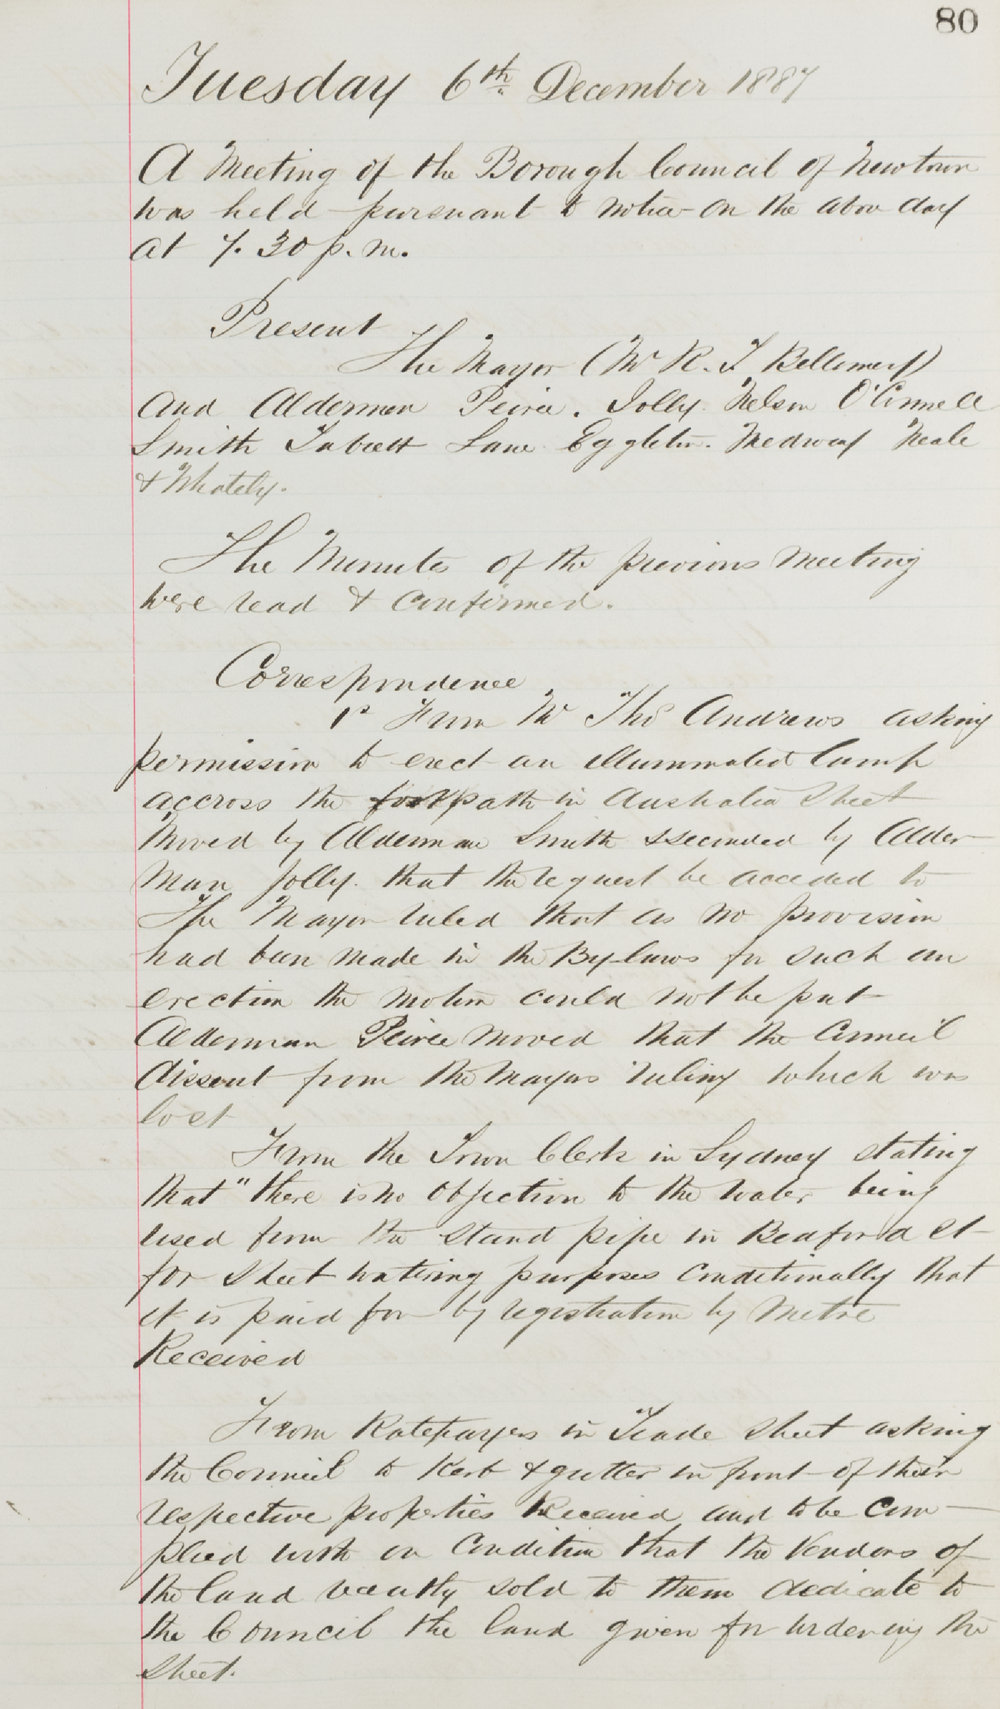 80
Tuesday 6th December 1887
A Meeting of the Borough Council of Newtown
was held pursuant to notice on the above day
at 7.30 p.m.
Present
The Mayor (Mr R. T. Bellemey)
and Aldermen Peirce. Jolly. Nelson O'Connell
Smith Tabrett Lane Eggleton. Medway Neale
& Whately.
The Minutes of the previous Meeting
were read & confirmed.
Correspondence
1st From Mr Thos Andrews asking
permission to erect an illuminated lamp
accross the footpath in Australia Street
Moved by Alderman Smith & seconded by Alder
man Jolly. that the request be acceded to
The Mayor ruled that as no provision
had been made in the By-laws for such an
erection the motion could not be put
Alderman Peirce moved that the Council
dissent from the Mayors ruling which was
lost
From the Town Clerk in Sydney stating
that "there is no objection to the water being
used from the stand pipe in Beaford St
for street watering purposes conditionally that
it is paid for by registration by Metre
Received
From Ratepayers in Trade Street asking
the Council to Kerb & gutter in front of their
respective properties Received and to be com
plied with on condition that the Vendors of
the land recently sold to them dedicate to
the Council the land given for widening the
street.